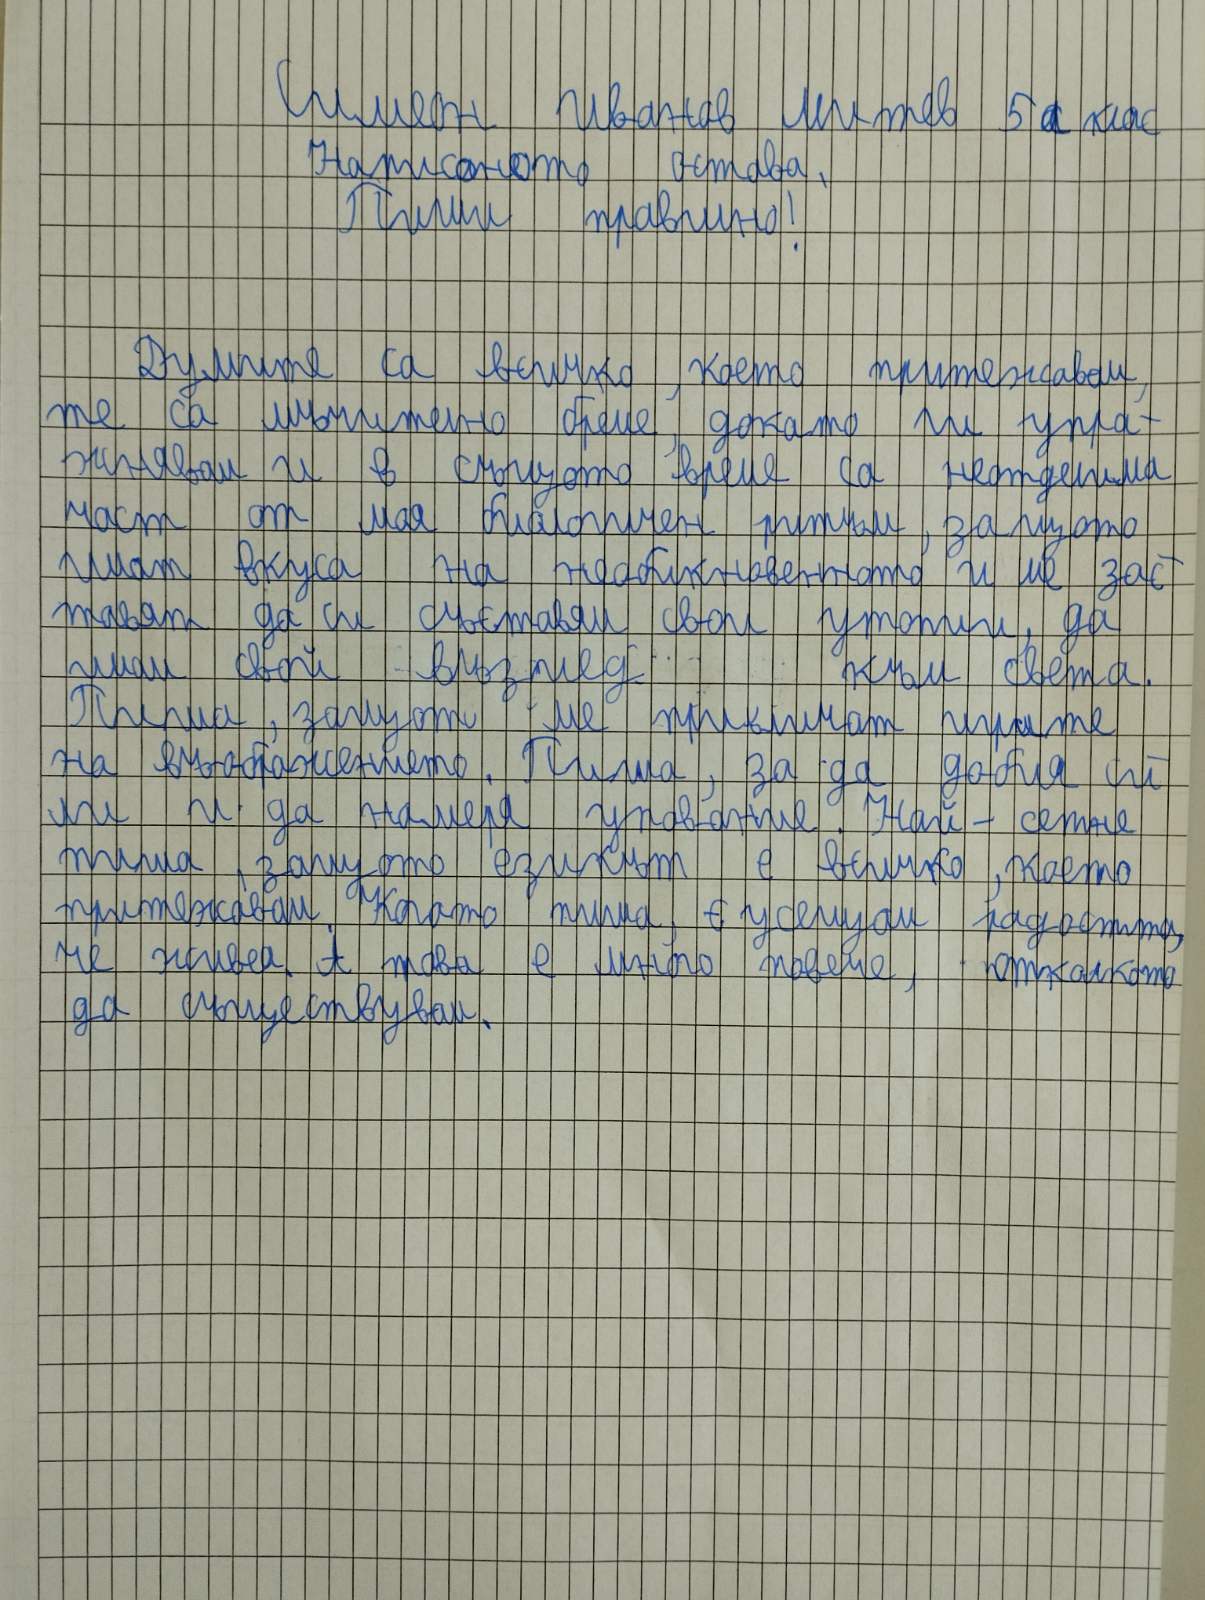 Симеон Иванов Митев 5а клас
Написаното остава.
Пиши правилно!
Думите са всичко, което притежавам,
те са мъчително бреме, докато ги упра-
жнявам и в същото време са неотделима
част от моя биологичен ритъм, защото
имат вкуса на необикновеното и ме зас-
тавят да си съставям свои утопии, да
имам свой възглед към света.
Пиша, защото ме привличат игрите
на въображението. Пиша, за да добия си
ли и да намеря упование. Най-сетне
пиша, защото езикът е всичко, което
притежавам. Когато пиша, усещам радостта,
че живея. А това е много повече, отколкото
да съществувам.